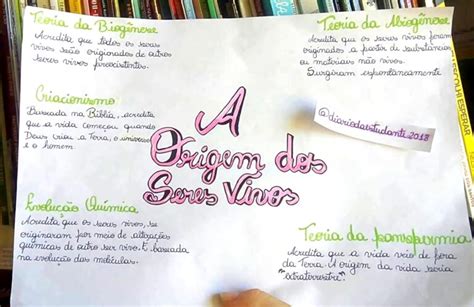 Teoria da Biogênese
Acredita que todos os seres
vivos são originados de outros
seres vivos preexistentes.
Teoria da Abiogênese
Acredita que os seres vivos foram
originados a partir de substâncias
ou materiais não vivos.
Surgiram espontaneamente
Criacionismo
Baseada na Bíblia, acredita
que a vida começou quando
Deus criou a Terra, o universo
e o homem.
@diariodaestudante2018
A
Origem dos
Seres Vivos
Evolução Química
Acredita que os seres vivos, se
originaram por meio de alterações
químicas de outro ser vivo. É baseada
na evolução das moléculas.
Teoria da panspermia
Acredita que a vida veio de fora
da Terra. A origem da vida seria
"extraterrestre".